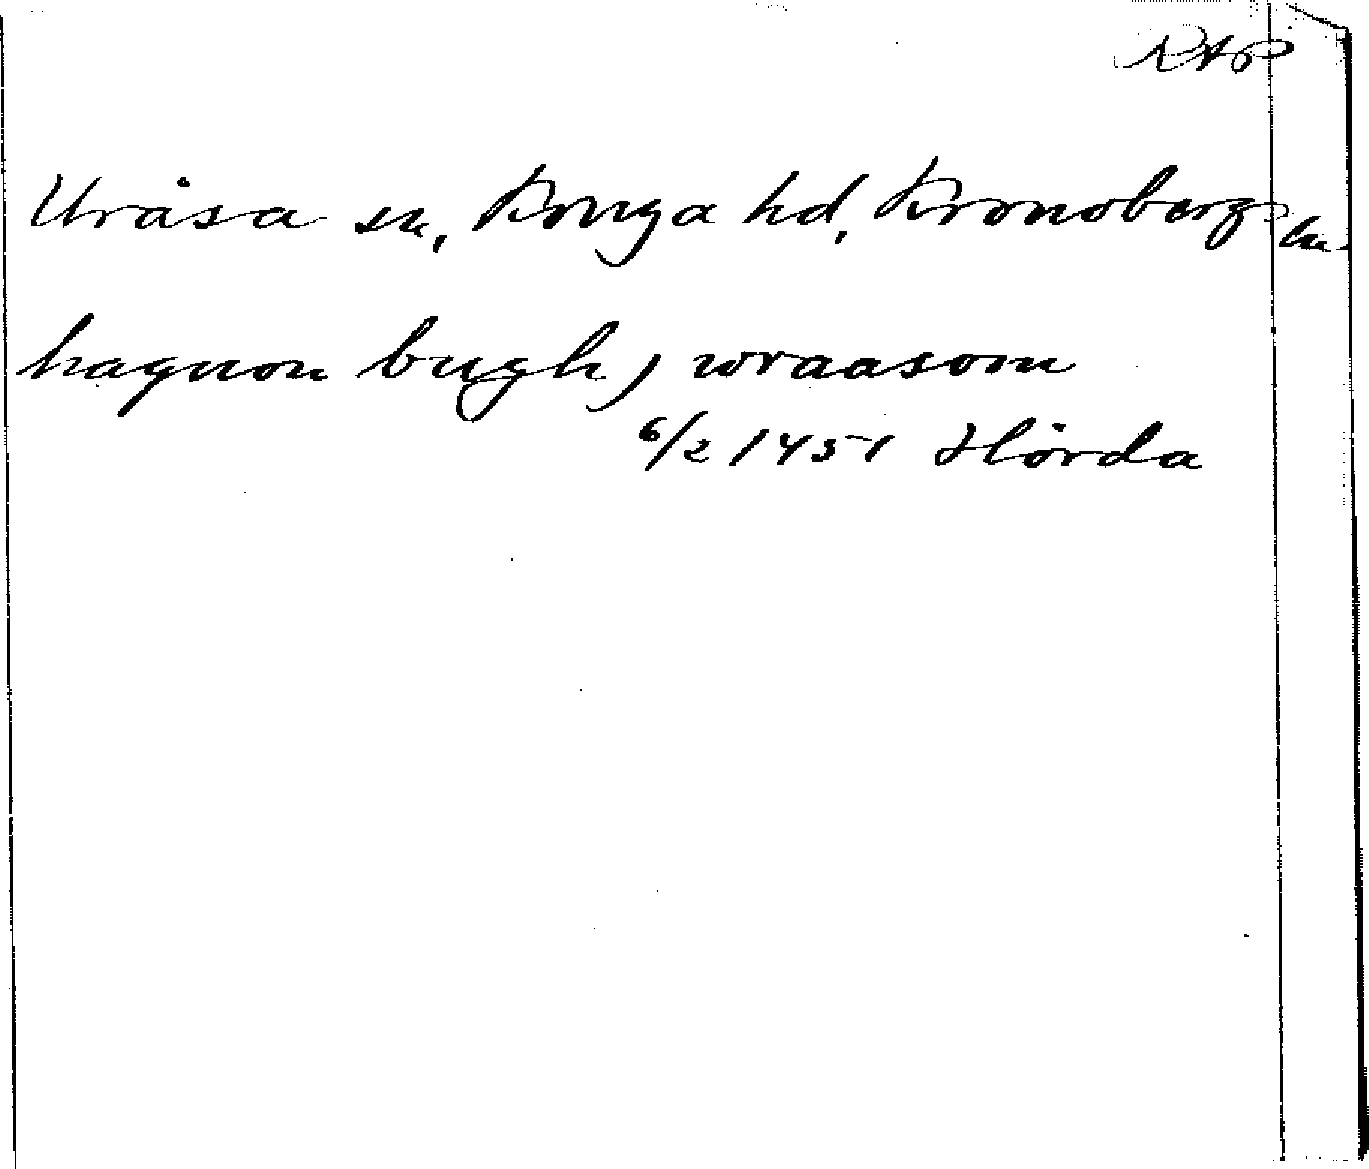 RAP
Uråsa sn, Konga hd, Kronobergs län
hagnon bugh) wraasom
6/2 1451 Hörda